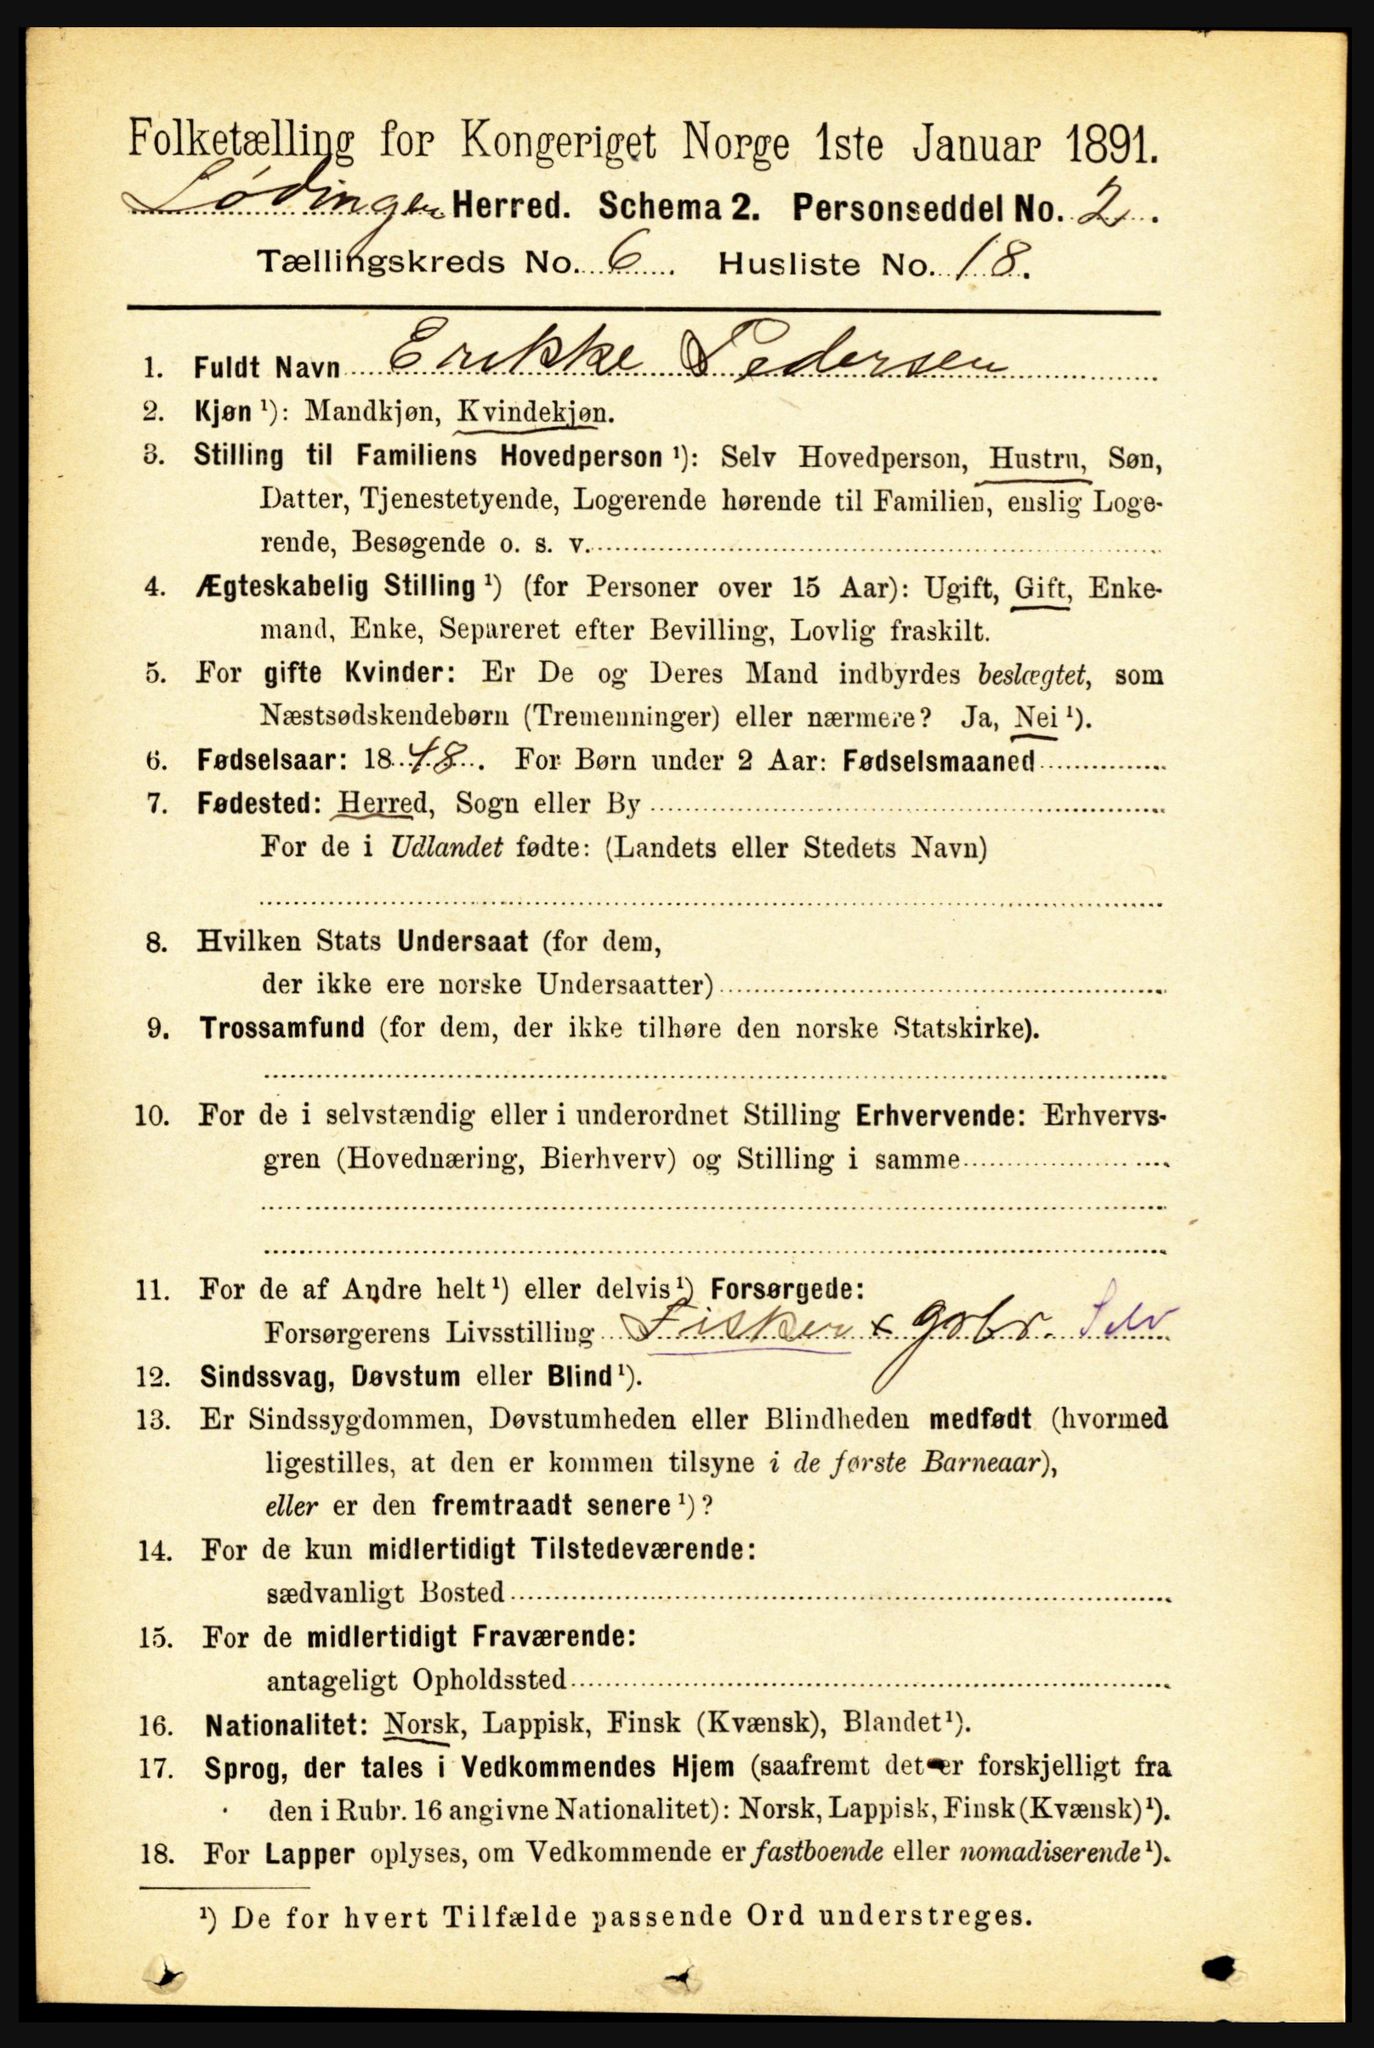 Folketælling for Kongeriget Norge 1ste Januar 1891.
Lødingen Herred. Schema 2. Personseddel No. 2.
Tællingskreds No. 6. Husliste No. 18.
1. Fuldt Navn Erikke Pedersen
2. Kjøn ¹): Mandkjøn, Kvindekjøn.
3. Stilling til Familiens Hovedperson ¹): Selv Hovedperson, Hustru, Søn,
Datter, Tjenestetyende, Logerende hørende til Familien, enslig Loge-
rende, Besøgende o. s. v.
4. Ægteskabelig Stilling ¹) (for Personer over 15 Aar): Ugift, Gift, Enke-
mand, Enke, Separeret efter Bevilling, Lovlig fraskilt.
5. For gifte Kvinder: Er De og Deres Mand indbyrdes beslægtet, som
Næstsødskendebørn (Tremenninger) eller nærmere? Ja, Nei ¹).
6. Fødselsaar: 1848. For Børn under 2 Aar: Fødselsmaaned
7. Fødested: Herred, Sogn eller By
For de i Udlandet fødte: (Landets eller Stedets Navn)
8. Hvilken Stats Undersaat (for dem,
der ikke ere norske Undersaatter)
9. Trossamfund (for dem, der ikke tilhøre den norske Statskirke).
10. For de i selvstændig eller i underordnet Stilling Erhvervende: Erhvervs-
gren (Hovednæring, Bierhverv) og Stilling i samme
11. For de af Andre helt ¹) eller delvis ¹) Forsørgede:
Forsørgerens Livsstilling Fisker x gbr. Selv
12. Sindssvag, Døvstum eller Blind ¹).
13. Er Sindssygdommen, Døvstumheden eller Blindheden medfødt (hvormed
ligestilles, at den er kommen tilsyne i de første Barneaar),
eller er den fremtraadt senere ¹)?
14. For de kun midlertidigt Tilstedeværende:
sædvanligt Bosted
15. For de midlertidigt Fraværende:
antageligt Opholdssted
16. Nationalitet: Norsk, Lappisk, Finsk (Kvænsk), Blandet ¹).
17. Sprog, der tales i Vedkommendes Hjem (saafremt det er forskjelligt fra
den i Rubr. 16 angivne Nationalitet): Norsk, Lappisk, Finsk (Kvænsk) ¹).
18. For Lapper oplyses, om Vedkommende er fastboende eller nomadiserende ¹).
¹) De for hvert Tilfælde passende Ord understreges.